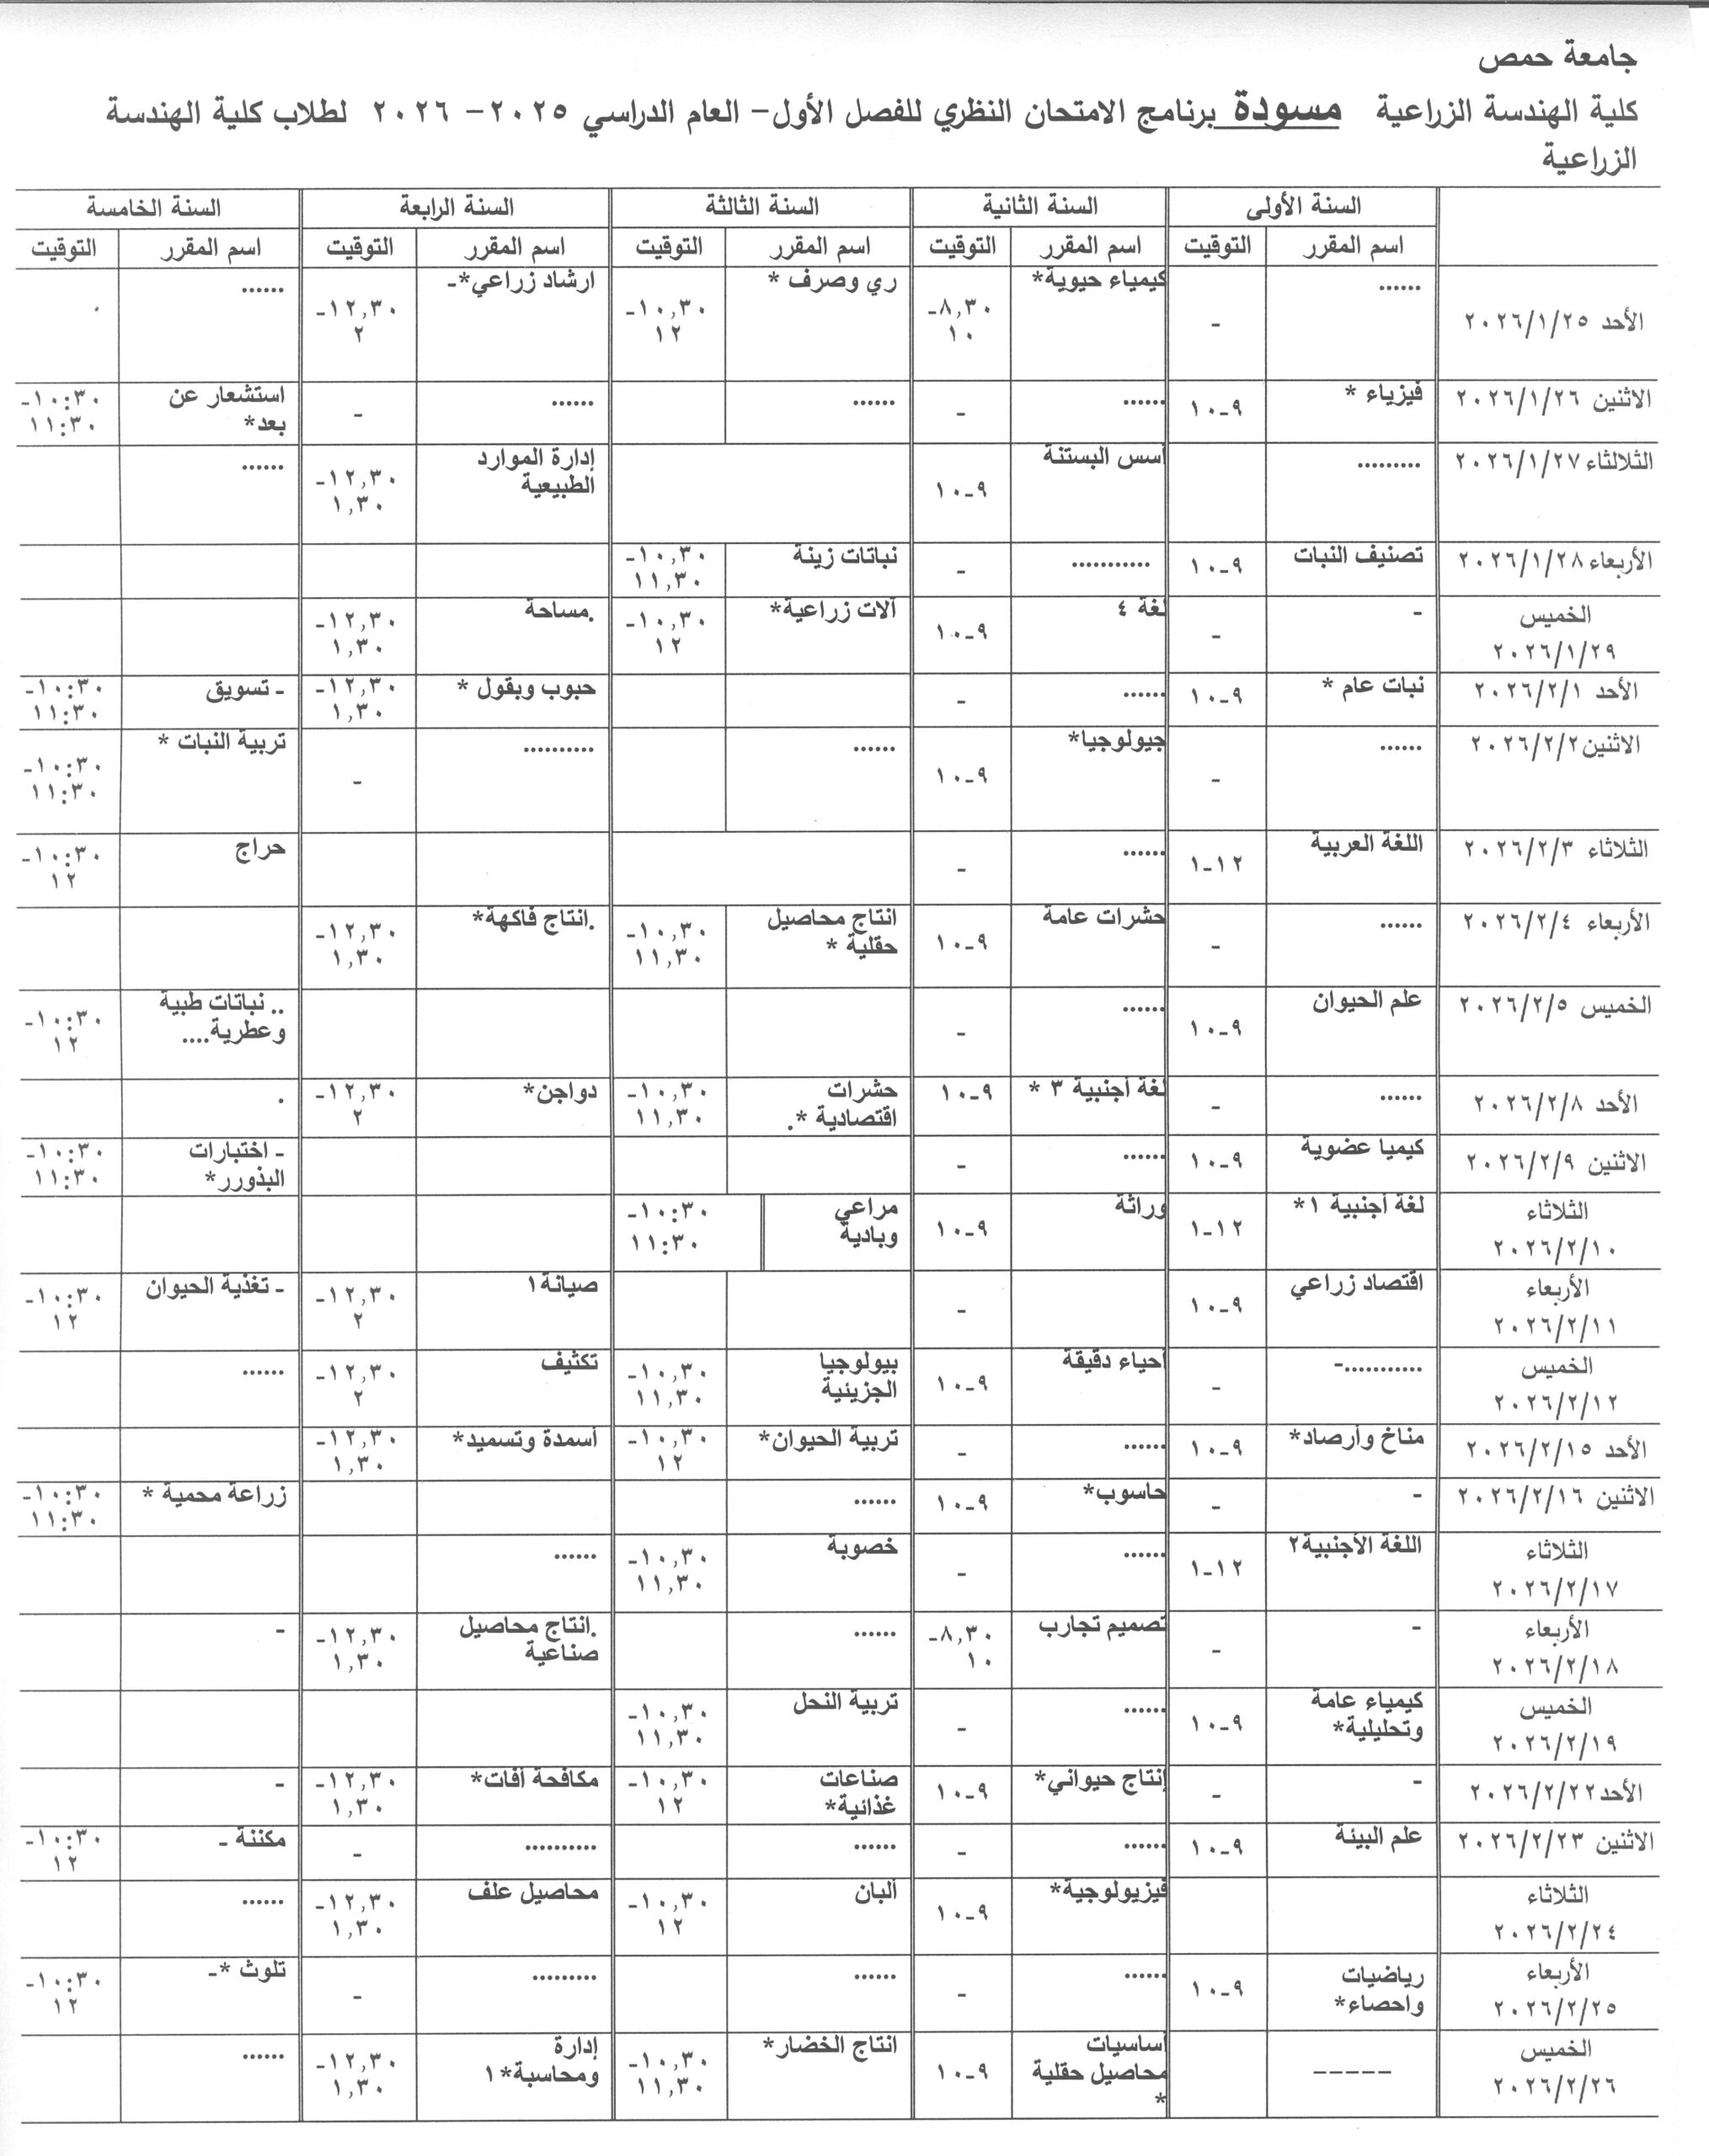 جامعة حمص
كلية الهندسة الزراعية مسودة برنامج الامتحان النظري للفصل الأول- العام الدراسي ٢٠٢٥- ٢٠٢٦ لطلاب كلية الهندسة
الزراعية
السنة الأولى السنة الثانية السنة الثالثة السنة الرابعة السنة الخامسة
اسم المقرر التوقيت اسم المقرر التوقيت اسم المقرر التوقيت اسم المقرر التوقيت اسم المقرر التوقيت
الأحد ٢٠٢٦/١/٢٥ ...... - كيمياء حيوية* ٨,٣٠-١٠ ري وصرف * ١٠,٣٠-١٢ ارشاد زراعي*- ١٢,٣٠-٢ ...... .
الاثنين ٢٠٢٦/١/٢٦ فيزياء * ٩-١٠ ...... - ...... ...... - استشعار عن بعد* ١٠:٣٠-١١:٣٠
الثلالثاء ٢٠٢٦/١/٢٧ ......... أسس البستنة ٩-١٠ إدارة الموارد الطبيعية ١٢,٣٠-١,٣٠ ......
الأربعاء ٢٠٢٦/١/٢٨ تصنيف النبات ٩-١٠ ........... - نباتات زينة ١٠,٣٠-١١,٣٠
الخميس ٢٠٢٦/١/٢٩ - - لغة ٤ ٩-١٠ آلات زراعية* ١٠,٣٠-١٢ .مساحة ١٢,٣٠-١,٣٠
الأحد ٢٠٢٦/٢/١ نبات عام * ٩-١٠ ...... - حبوب وبقول * ١٢,٣٠-١,٣٠ - تسويق ١٠:٣٠-١١:٣٠
الاثنين ٢٠٢٦/٢/٢ ...... - جيولوجيا* ٩-١٠ ...... .......... - تربية النبات * ١٠:٣٠-١١:٣٠
الثلاثاء ٢٠٢٦/٢/٣ اللغة العربية ١٢-١ ...... - حراج ١٠:٣٠-١٢
الأربعاء ٢٠٢٦/٢/٤ ...... - حشرات عامة ٩-١٠ انتاج محاصيل حقلية * ١٠,٣٠-١١,٣٠ .انتاج فاكهة* ١٢,٣٠-١,٣٠
الخميس ٢٠٢٦/٢/٥ علم الحيوان ٩-١٠ ...... - .. نباتات طبية وعطرية.... ١٠:٣٠-١٢
الأحد ٢٠٢٦/٢/٨ ...... - لغة أجنبية ٣ * ٩-١٠ حشرات اقتصادية *. ١٠,٣٠-١١,٣٠ دواجن* ١٢,٣٠-٢ .
الاثنين ٢٠٢٦/٢/٩ كيميا عضوية ٩-١٠ ...... - - اختبارات البذورر* ١٠:٣٠-١١:٣٠
الثلاثاء ٢٠٢٦/٢/١٠ لغة أجنبية ١* ١٢-١ وراثة ٩-١٠ مراعي وبادية ١٠:٣٠-١١:٣٠
الأربعاء ٢٠٢٦/٢/١١ اقتصاد زراعي ٩-١٠ - صيانة١ ١٢,٣٠-٢ - تغذية الحيوان ١٠:٣٠-١٢
الخميس ٢٠٢٦/٢/١٢ ...........- - أحياء دقيقة ٩-١٠ بيولوجيا الجزيئية ١٠,٣٠-١١,٣٠ تكثيف ١٢,٣٠-٢ ......
الأحد ٢٠٢٦/٢/١٥ مناخ وأرصاد* ٩-١٠ ...... - تربية الحيوان* ١٠,٣٠-١٢ أسمدة وتسميد* ١٢,٣٠-١,٣٠
الاثنين ٢٠٢٦/٢/١٦ - - حاسوب* ٩-١٠ ...... زراعة محمية * ١٠:٣٠-١١:٣٠
الثلاثاء ٢٠٢٦/٢/١٧ اللغة الأجنبية٢ ١٢-١ ...... - خصوبة ١٠,٣٠-١١,٣٠ ......
الأربعاء ٢٠٢٦/٢/١٨ - - تصميم تجارب ٨,٣٠-١٠ ...... .انتاج محاصيل صناعية ١٢,٣٠-١,٣٠ -
الخميس ٢٠٢٦/٢/١٩ كيمياء عامة وتحليلية* ٩-١٠ ...... - تربية النحل ١٠,٣٠-١١,٣٠
الأحد ٢٠٢٦/٢/٢٢ - - إنتاج حيواني* ٩-١٠ صناعات غذائية* ١٠,٣٠-١٢ مكافحة آفات* ١٢,٣٠-١,٣٠ -
الاثنين ٢٠٢٦/٢/٢٣ علم البيئة ٩-١٠ ...... - ...... .......... - مكننة - ١٠:٣٠-١٢
الثلاثاء ٢٠٢٦/٢/٢٤ فيزيولوجية* ٩-١٠ ألبان ١٠,٣٠-١٢ محاصيل علف ١٢,٣٠-١,٣٠ ......
الأربعاء ٢٠٢٦/٢/٢٥ رياضيات واحصاء* ٩-١٠ ...... - ...... ......... - تلوث *- ١٠:٣٠-١٢
الخميس ٢٠٢٦/٢/٢٦ ----- أساسيات محاصيل حقلية * ٩-١٠ انتاج الخضار* ١٠,٣٠-١١,٣٠ إدارة ومحاسبة* ١ ١٢,٣٠-١,٣٠ ......